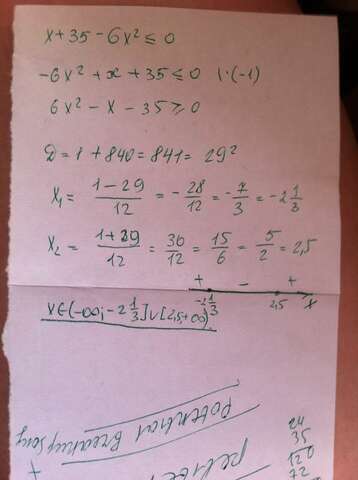 x+35-6x² ≤ 0
-6x²+x+35 ≤ 0 |·(-1)
6x²-x-35 ≥ 0
D = 1+840 = 841 = 29²
x₁ = (1-29)/12 = -28/12 = -7/3 = -2 1/3
x₂ = (1+29)/12 = 30/12 = 15/6 = 5/2 = 2,5
+ - +
-2 1/3 2,5 x
x∈(-∞; -2 1/3]∪[2,5+∞)
Potential Breakup Song
+
24
35
120
72